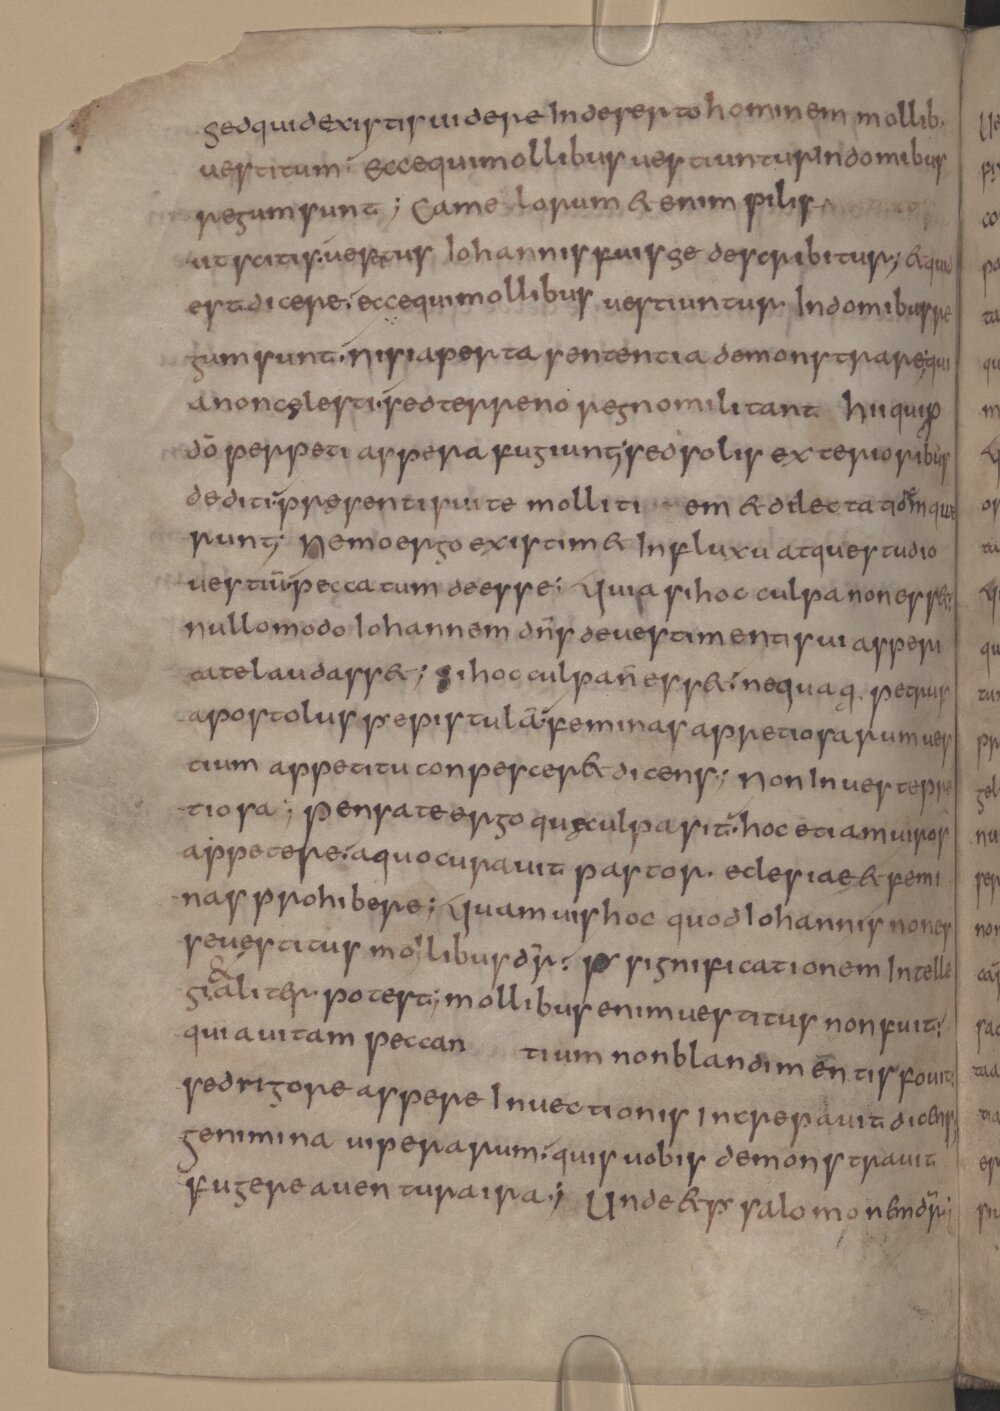 sed quid existis uidere In deserto hominem mollib;
uestitum; Ecce qui mollibus uestiuntur In domibus
regum sunt; Camelorum & enim pilis
ut scitis uestitus Iohannis fuisse describitur; & quid
est dicere; ecce qui mollibus uestiuntur In domibus re
gum sunt. nisi aperta sententia demonstrare; qui
a non cęlesti. sed terreno regno militant hii qui ꝓ
dō perpeti aspera fugiunt; sed solis exterioribus
dediti; presentis uite mollitiem & dilectationem quæ
runt; Nemo ergo existim& In fluxu atque studio
uestiū peccatum deesse; Quia si hoc culpa non ess&;
nullo modo Iohannem dn̄s de uestimenti sui asperi
tate laudass&; si hoc culpa n̄ ess&; nequaq. petrus
apostolus ꝑ epistulā; feminas a pretiosarum ues
tium appetitu conpescer& dicens; Non In ueste pre
tiosa; Pensate ergo quę culpa sit̄ hoc etiam uiros
appetere. a quo curauit pastor eclesiae & femi
nas prohibere; Quamuis hoc quod Iohannis non es
se uestitus mollibus dr̄; ꝑ significationem Intelle
gi & aliter potest; mollibus enim uestitus non fuit;
quia uitam peccantium non blandimentis fouit;
sed rigore aspere Inuectionis Increpauit dicens;
genimina uiperarum; quis uobis demonstrauit
fugere a uentura ira; Unde & ꝑ salomonem dr̄;